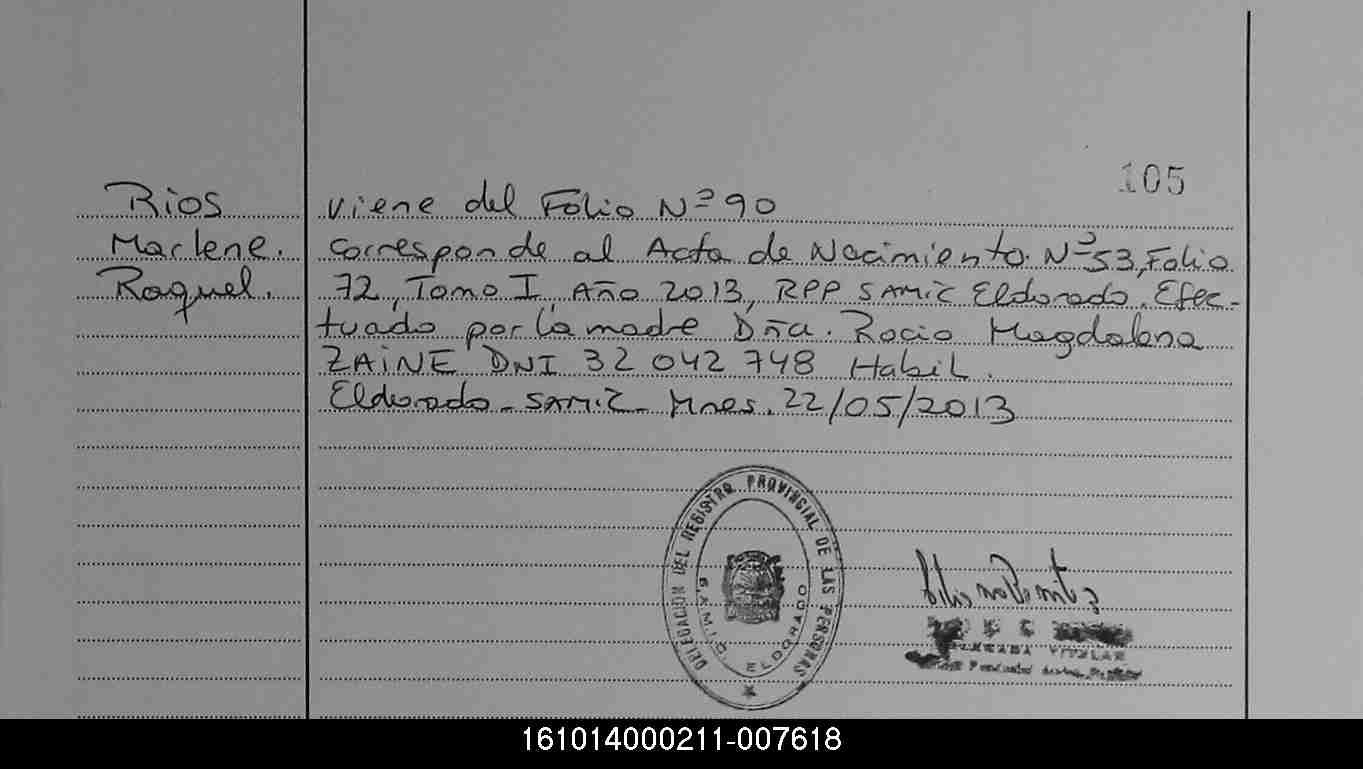 105
Rios
Marlene.
Raquel.
viene del Folio Nº 90
corresponde al Acta de Nacimiento. Nº 53, Folio
72, Tomo I, Año 2013, RPP SAMIC Eldorado. Efec-
tuado por la madre Dña. Rocio Magdalena
ZAINE DNI 32 042 748 Habil.
Eldorado - SAMIC - Mnes. 22/05/2013
DELEGACION DEL REGISTRO PROVINCIAL DE LAS PERSONAS
S.A.M.I.C. ELDORADO
TITULAR
161014000211-007618